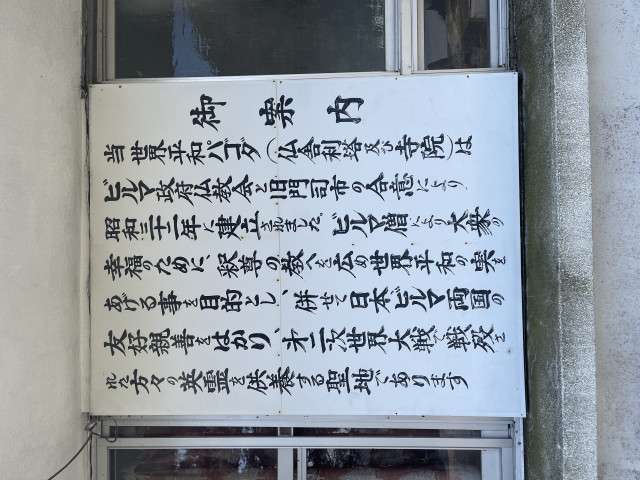 御案内
当世界平和パゴダ(仏舎利塔及び寺院)は
ビルマ政府仏教会と旧門司市の合意により
昭和三十二年に建立されました。ビルマ僧により大衆の
幸福のために、釈尊の教へを広め世界平和の実を
あげる事を目的とし、併せて日本ビルマ両国の
友好親善をはかり、第二次世界大戦で戦歿さ
れた方々の英霊を供養する聖地であります